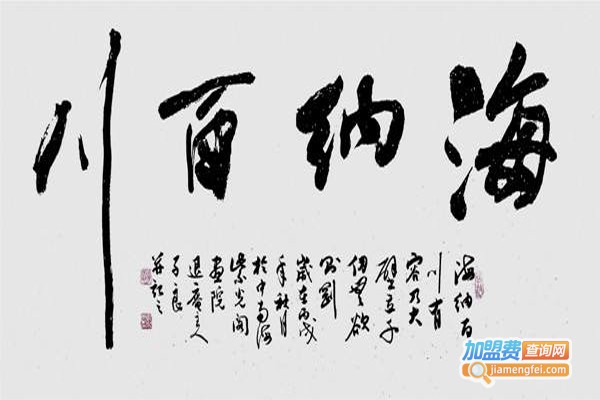 海纳百川
海纳百
川有
容乃大
壁立千
仞无欲
则刚
岁在丙戌
年秋月
于中南海
紫光阁
画院
退斋主人
子良
并记之
加盟费查询网
jiamengfei.com